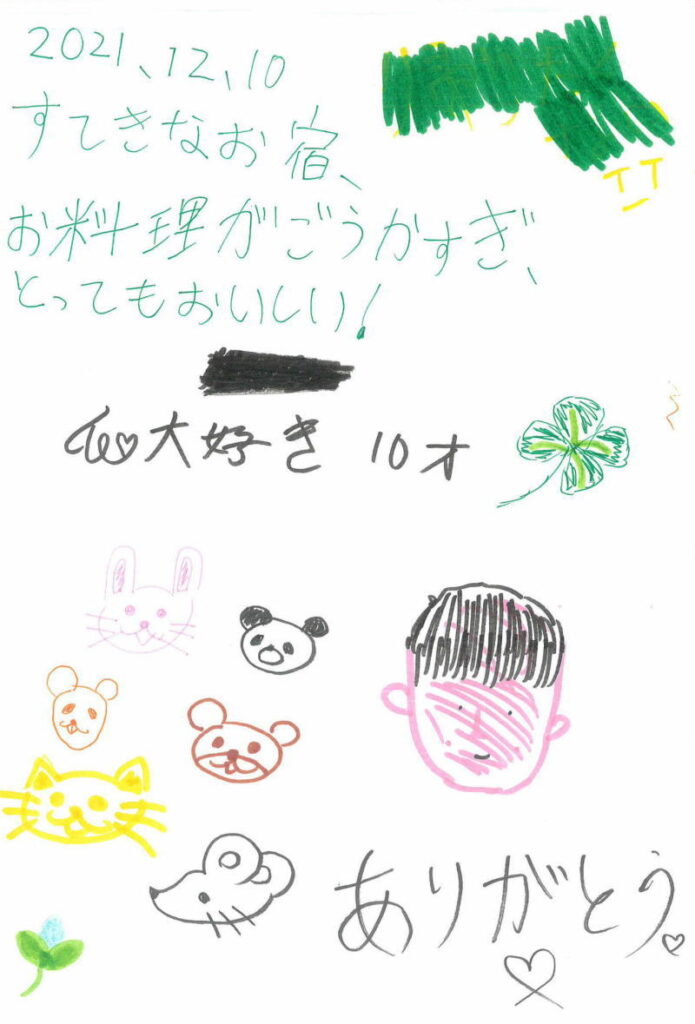 2021、12、10
すてきなお宿、
お料理がごうかすぎ、
とってもおいしい!
大好き 10才
ありがとう